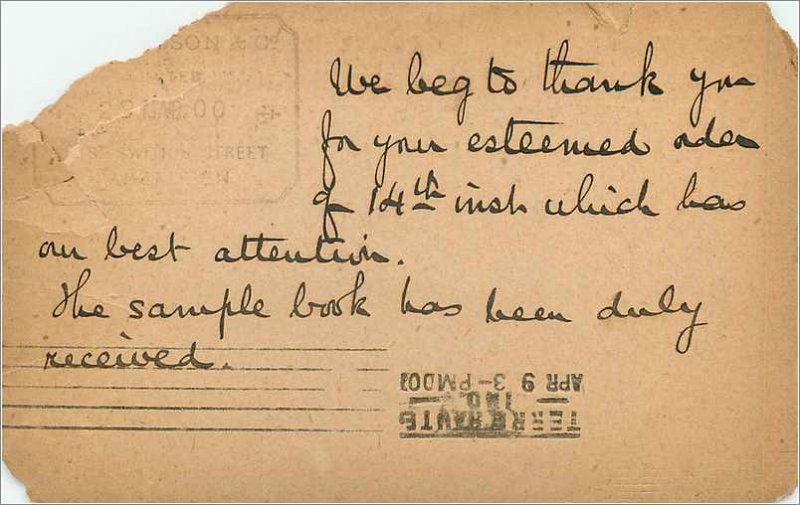 SON & C
28 MAR.00
STREET
We beg to thank you
for your esteemed order
of 14th inst which has
our best attention.
The sample book has been duly
received.
TERRE HAUTE
IND.
APR 9 3-PM